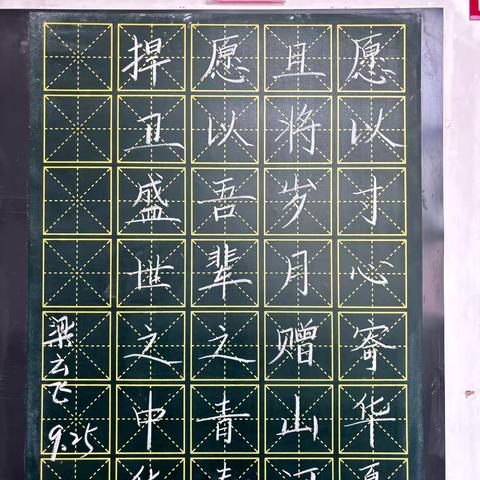 愿以寸心寄华夏
且将岁月赠山河
愿以吾辈之青春
捍卫盛世之中华
梁云飞
9.25